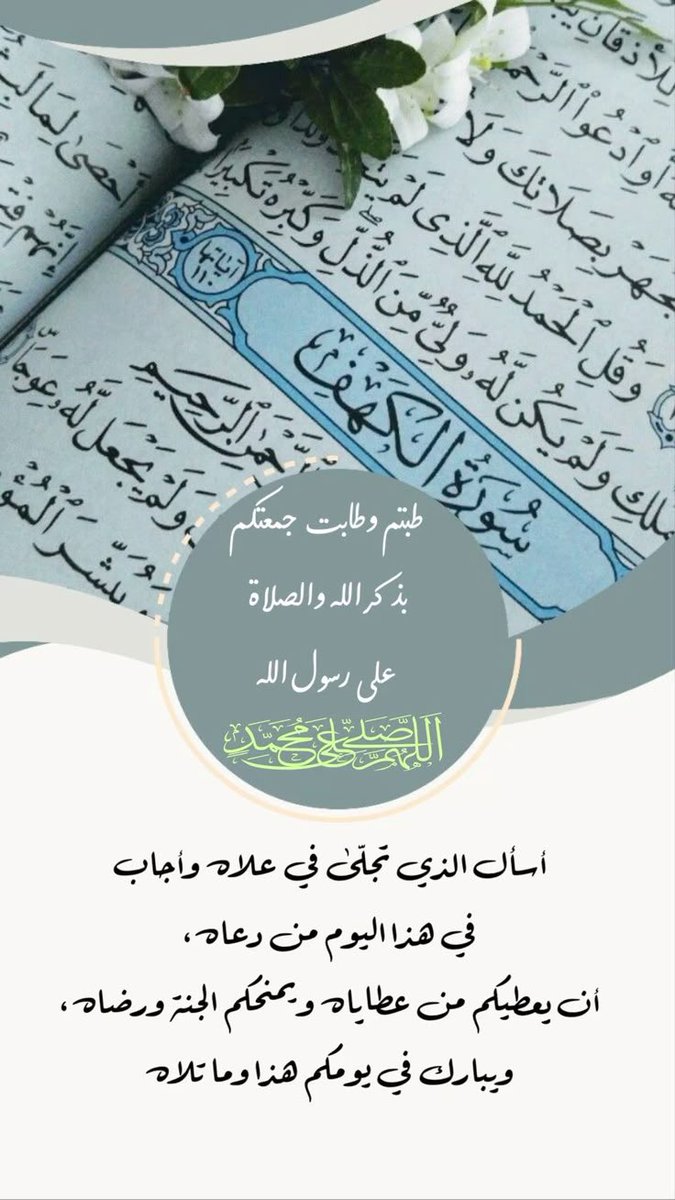 للأذقان
أو ادعوا الرحمن
تجهر بصلاتك ولا
وقل الحمد لله الذي لم يتخذ ولدا
الملك ولم يكن له ولي من الذل وكبره تكبيرا
أحصى لما لبثوا
سورة الكهف
آياتها
الرحمن الرحيم
ولم يجعل له عوجا
ويبشر
طبتم وطابت جمعتكم
بذكر الله والصلاة
على رسول الله
اللهم صل على محمد
أسأل الذي تجلّىٰ في علاه وأجاب
في هذا اليوم من دعاه،
أن يعطيكم من عطاياه ويمنحكم الجنة ورضاه،
ويبارك في يومكم هذا وما تلاه